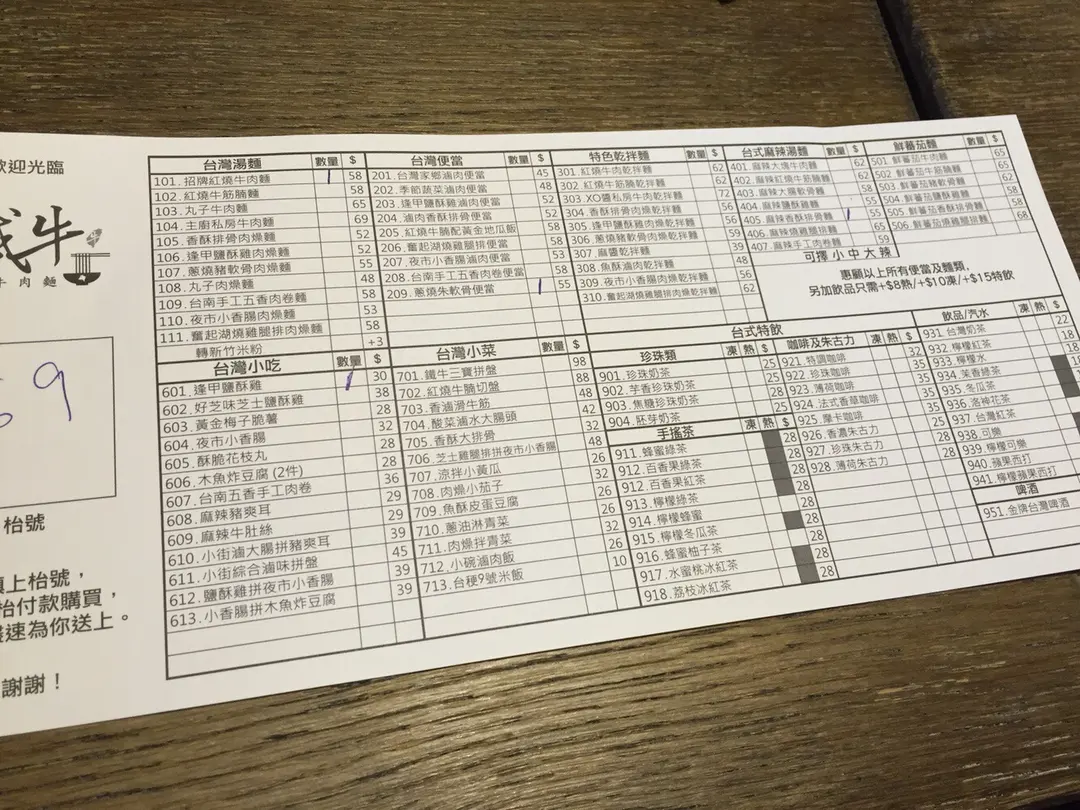 歡迎光臨
牛
牛肉麵
9
枱號
填上枱號，
枱付款購買，
速為你送上。
謝謝！
台灣湯麵 數量 $
101.招牌紅燒牛肉麵 1 58
102.紅燒牛筋腩麵 58
103.丸子牛肉麵 65
104.主廚私房牛肉麵 69
105.香酥排骨肉燥麵 52
106.逢甲鹽酥雞肉燥麵 52
107.蔥燒豬軟骨肉燥麵
108.丸子肉燥麵 48
109.台南手工五香肉卷麵 58
110.夜市小香腸肉燥麵 53
111.奮起湖燒雞腿排肉燥麵 58
轉新竹米粉 +3
台灣小吃 數量 $
601.逢甲鹽酥雞 1 30
602.好芝味芝士鹽酥雞 38
603.黃金梅子脆薯 28
604.夜市小香腸
605.酥脆花枝丸
606.木魚炸豆腐 (2件)
607.台南五香手工肉卷
608.麻辣豬爽耳
609.麻辣牛肚絲
610.小街滷大腸拼豬爽耳
611.小街綜合滷味拼盤
612.鹽酥雞拼夜市小香腸
613.小香腸拼木魚炸豆腐
台灣便當 數量 $
201.台灣家鄉滷肉便當 45
202.季節蔬菜滷肉便當 48
203.逢甲鹽酥雞滷肉便當 52
204.滷肉香酥排骨便當 52
205.紅燒牛腩配黃金地瓜飯 58
206.奮起湖燒雞腿排便當 58
207.夜市小香腸滷肉便當
208.台南手工五香肉卷便當
209.蔥燒朱軟骨便當 1 55
台灣小菜 數量 $
701.鐵牛三寶拼盤 98
702.紅燒牛腩切盤 88
703.香滷牛筋 48
704.酸菜滷水大腸頭 42
705.香酥大排骨
706.芝士雞腿排拼夜市小香腸
707.涼拌小黃瓜
708.肉燥小茄子
709.魚酥皮蛋豆腐
710.蔥油淋青菜
711.肉燥拌青菜
712.小碗滷肉飯
713.台稉9號米飯 10
特色乾拌麵 數量 $
301.紅燒牛肉乾拌麵 62
302.紅燒牛筋腩乾拌麵 62
303.XO醬私房牛肉乾拌麵 72
304.香酥排骨肉燥乾拌麵 56
305.逢甲鹽酥雞肉燥乾拌麵 56
306.蔥燒豬軟骨肉燥乾拌麵 56
307.麻醬乾拌麵 39
308.魚酥滷肉乾拌麵 48
309.夜市小香腸肉燥乾拌麵 56
310.奮起湖燒雞腿排肉燥乾拌麵 62
台式麻辣湯麵 數量 $
401.麻辣大塊牛肉麵 62
402.麻辣紅燒牛筋腩麵 62
403.麻辣大腸軟骨麵 58
404.麻辣鹽酥雞麵 55
405.麻辣香酥排骨麵 1 55
406.麻辣燒雞腿排麵
407.麻辣手工肉卷麵 59
可擇小中大辣
鮮蕃茄麵 數量 $
501.鮮蕃茄牛肉麵 65
502.鮮蕃茄牛筋腩麵 65
503.鮮蕃茄豬軟骨麵
504.鮮蕃茄鹽酥雞麵
505.鮮蕃茄香酥排骨麵 58
506.鮮蕃茄燒雞腿排麵 68
惠顧以上所有便當及麵類，
另加飲品只需+$8熱/+$10凍/+$15特飲
台式特飲
珍珠類 凍 熱 $
901.珍珠奶茶 25
902.芋香珍珠奶茶 28
903.焦糖珍珠奶茶 25
904.胚芽奶茶 25
手搖茶 凍 熱 $
911.蜂蜜綠茶 28
912.百香果綠茶 28
912.百香果紅茶 28
913.檸檬綠茶 28
914.檸檬蜂蜜 28
915.檸檬冬瓜茶 28
916.蜂蜜柚子茶 28
917.水蜜桃冰紅茶 28
918.荔枝冰紅茶 28
咖啡及朱古力 凍 熱 $
921.特調咖啡 32
922.珍珠咖啡 35
923.薄荷咖啡 35
924.法式香草咖啡 35
925.摩卡咖啡 35
926.香濃朱古力 25
927.珍珠朱古力 28
928.薄荷朱古力 28
飲品/汽水 凍 熱 $
931.台灣奶茶 22
932.檸檬紅茶 18
933.檸檬水 18
934.茉香綠茶
935.冬瓜茶
936.洛神花茶
937.台灣紅茶
938.可樂
939.檸檬可樂
940.蘋果西打
941.檸檬蘋果西打
啤酒
951.金牌台灣啤酒